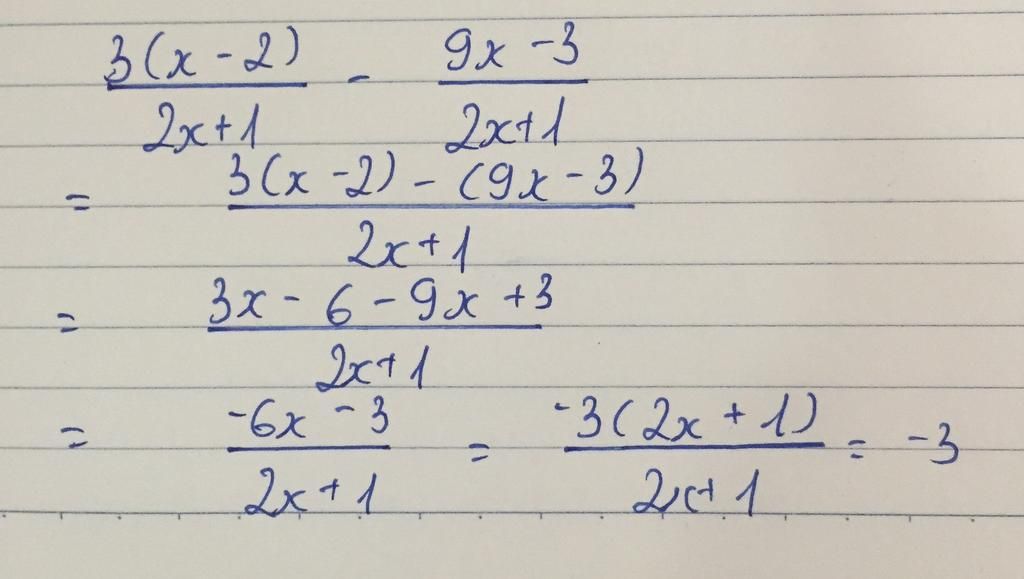 \frac{3(x-2)}{2x+1} - \frac{9x-3}{2x+1}
= \frac{3(x-2)-(9x-3)}{2x+1}
= \frac{3x-6-9x+3}{2x+1}
= \frac{-6x-3}{2x+1} = \frac{-3(2x+1)}{2x+1} = -3